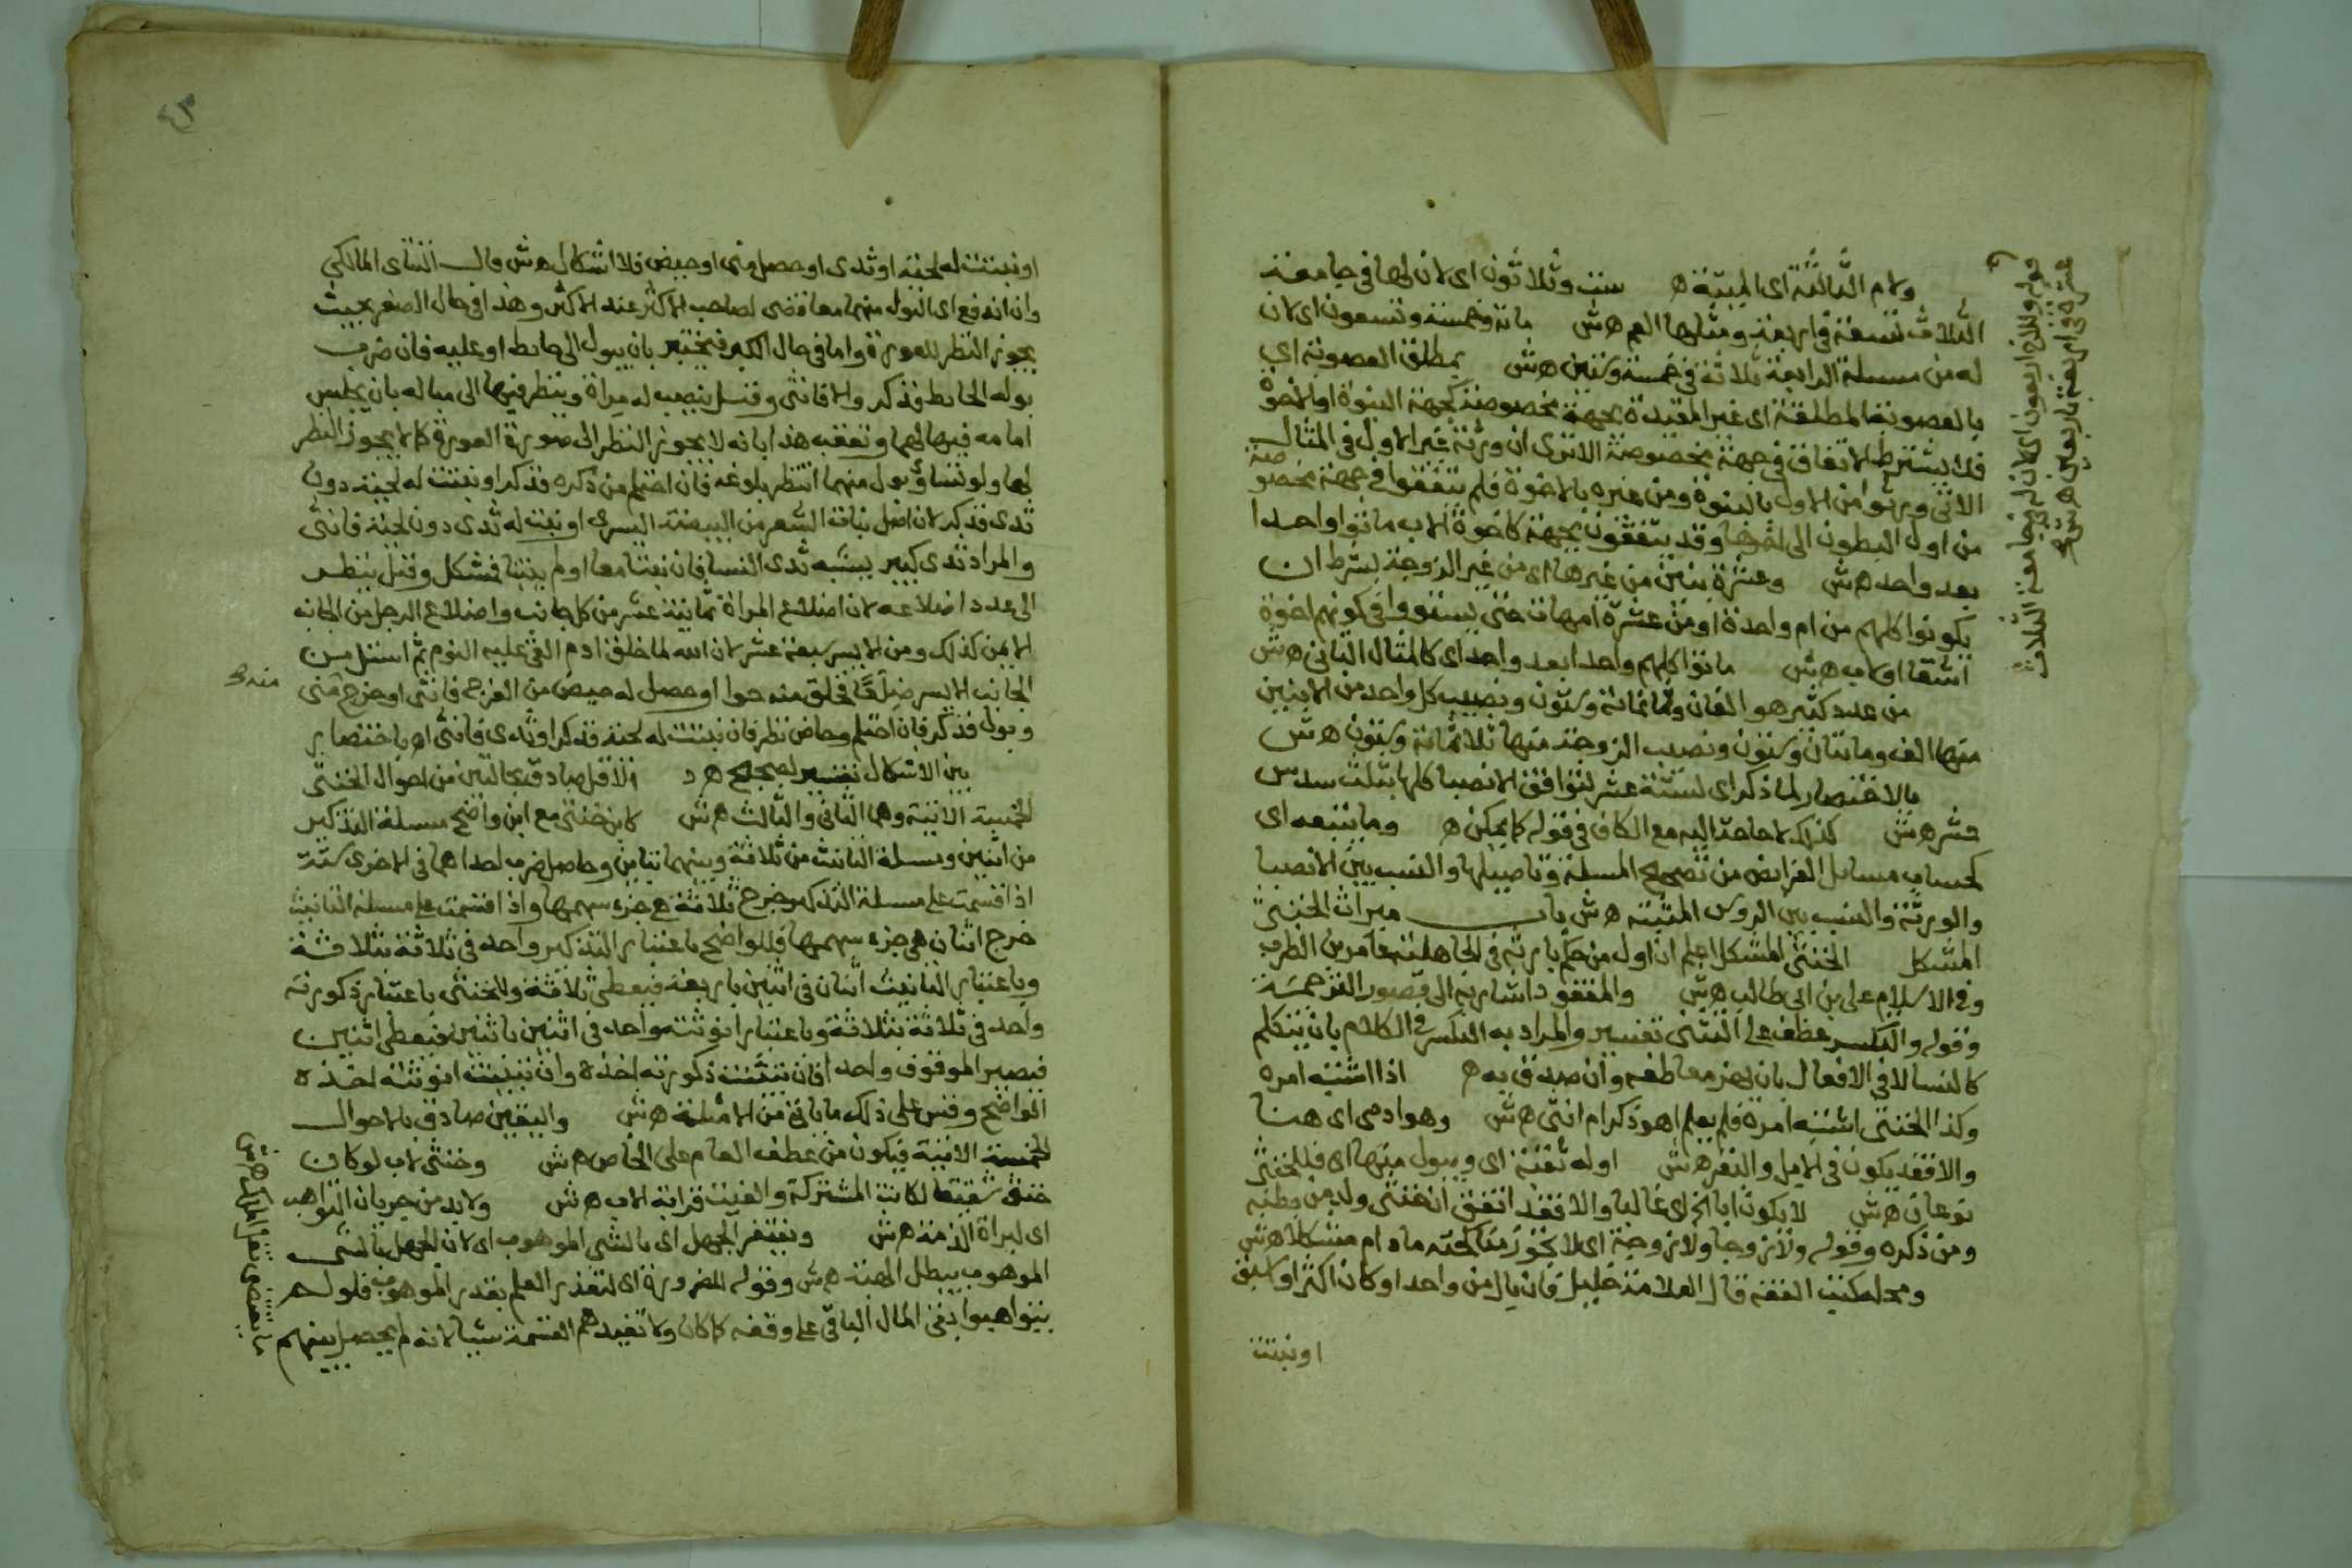 ولام الثالثة اى الميتة ه ست وثلاثون اى لان لها فى جامعة
الثلاث تسعة فى اربعة ومثلها العم ه ش ماية وخمسة وتسعون اى لان
له من مسئلة الرابعة ثلاثة فى خمسة وستين ه ش بمطلق العصوبة اي
بالعصوبة المطلقة اى غير المقيدة بجهة مخصوصة كجهة البنوة او الاخوة
فلا يشترط الاتفاق فى جهة مخصوصة الا ترى ان ورثة غير الاول فى المثال
الاتى ورثوا من الاول بالبنوة ومن غيره بالاخوة فلم يتفقوا فى جهة مخصوصة
من اول البطون الى اخرها وقد يتفقون بجهة كاخوة لاب ماتوا واحدا
بعد واحد ه ش وعشرة بنين من غيرها اى من غير الزوجة بشرط ان
يكونوا كلهم من ام واحدة او من عشرة امهات حتى يستووا فى كونهم اخوة
اشقا او لاب ه ش ماتوا كلهم واحدا بعد واحد اى كالمثال الثانى ه ش
من عدد كثير هو الفان وثمانمائة وستون ونصيب كل واحد من الابنين
منها الف ومائتان وستون ونصيب الزوجة منها ثلاثمائة وستون ه ش
بالاختصار لما ذكر اى لستة عشر لتوافق الانصبا كلها بثلث سدس
عشر ه ش كذلك لا حاجة اليه مع الكاف فى قوله كما يمكن ه وما يتبعه اى
كحساب مسائل الفرائض من تصحيح المسئلة وتاصيلها والنسب بين الانصبا
والورثة والنسب بين الروس المثبتة ه ش باب ميراث الخنثى
المشكل الخنثى المشكل اعلم ان اول من حكم بارثه فى الجاهلية عامر بن الظرب
وفى الاسلام على بن ابى طالب ه ش والمفقود اشار به الى قصور الترجمة
وقوله والتكسر عطف على التثنى تفسير والمراد به التكسر فى الكلام بان يتكلم
كالنسا لا فى الافعال بان يهز معاطفه وان صدق به ه اذا اشتبه امره
وكذا الخنثى اشتبه امره فلم يعلم اهو ذكر ام انثى ه ش وهو ادمى اى هنا
والا فقد يكون فى الابل والبقر ه ش او له ثقبة اى ويبول منها اى فللخنثى
نوعان ه ش لا يكون ابا الخ اى غالبا والا فقد اتفق ان خنثى ولد من بطنه
ومن ذكره وقوله ولا زوجا ولا زوجة اى لا يجوز مناكحته ما دام مشكلا ه ش
ومحله كتب الفقه قال العلامة خليل فان بال من واحد او كان اكثر او اسبق
او نبتت
قوله وللاخ اربعون اى لان له فى جامعة الثلاث
عشرة فى اربعة باربعين ه ش
او نبتت له لحية او ثدى او حصل منى او حيض فلا اشكال ه ش قال التتاى المالكى
وان اندفع اى البول منهما معا قضى لصاحب الاكثر عند الاكثر وهذا فى حال الصغر بحيث
يجوز النظر للعورة واما فى حال الكبر فيختبر بان يبول الى حايط او عليه فان ضرب
بوله الحايط فذكر والا فانثى وقيل ينصب له مراة وينظر فيها الى مباله بان يجلس
امامه فيها لهما وتعقب هذا بانه لا يجوز النظر الى صورة العورة كما لا يجوز النظر
لها ولو تساوى بول منهما انتظر بلوغه فان احتلم من ذكره فذكر او نبتت له لحية دون
ثدى فذكر لان اصل نبات الشعر من البيضة اليسرى او نبت له ثدى دون لحية فانثى
والمراد ثدى كبير يشبه ثدى النسا فان نبتا معا او لم ينبتا فمشكل وقيل ينظر
الى عدد اضلاعه لان اضلاع المراة ثمانية عشر من كل جانب واضلاع الرجل من الجانب
الايمن كذلك ومن الايسر سبعة عشر لان الله لما خلق ادم القى عليه النوم ثم استل من
الجانب الايسر ضلعا فخلق منه حوا او حصل له حيض من الفرج فانثى او خرج منى
منه ح
وبول فذكر فان احتلم وحاض نظر فان نبتت له لحية فذكر او ثدى فانثى اه باختصار
بين الاشكال تفسير لصحيح ه د والاقل صادق بحالتين من احوال الخنثى
الخمسة الاتية وهما الثانى والثالث ه ش كابن خنثى مع ابن واضح مسئلة التذكير
من اثنين ومسئلة التانيث من ثلاثة وبينهما تباين وحاصل ضرب احداهما فى الاخرى ستة
اذا قسمت على مسئلة التذكير خرج ثلاثة هى جزء سهمها واذا قسمت على مسئلة التانيث
خرج اثنان هى جزء سهمها فللواضح باعتبار التذكير واحد فى ثلاثة بثلاثة
وباعتبار التانيث اثنان فى اثنين باربعة فيعطى ثلاثة وللخنثى باعتبار ذكورته
واحد فى ثلاثة بثلاثة وباعتبار انوثته واحد فى اثنين باثنين فيعطى اثنين
فيصير الموقوف واحدا فان تبينت ذكورته اخذه وان تبينت انوثته اخذه
الواضح وقس على ذلك ما ياتى من الامثلة ه ش واليقين صادق بالاحوال
الخمسة الاتية فيكون من عطف العام على الخاص ه ش وخنثى لاب لو كان
خنثى شقيقا لكانت المشتركة والغيت قرابة الاب ه ش ولا بد من جريان التواهب
اى لبراة الذمة ه ش ويغتفر الجهل اى بالشى الموهوب اى لان الجهل بالشى
الموهوب يبطل الهبة ه ش وقوله للضرورة اى لتعذر العلم بقدر الموهوب فلو لم
يتواهبوا بقى المال الباقى على وقفه كما كان ولا تفيدهم القسمة شيا لانه لم يحصل بينهم